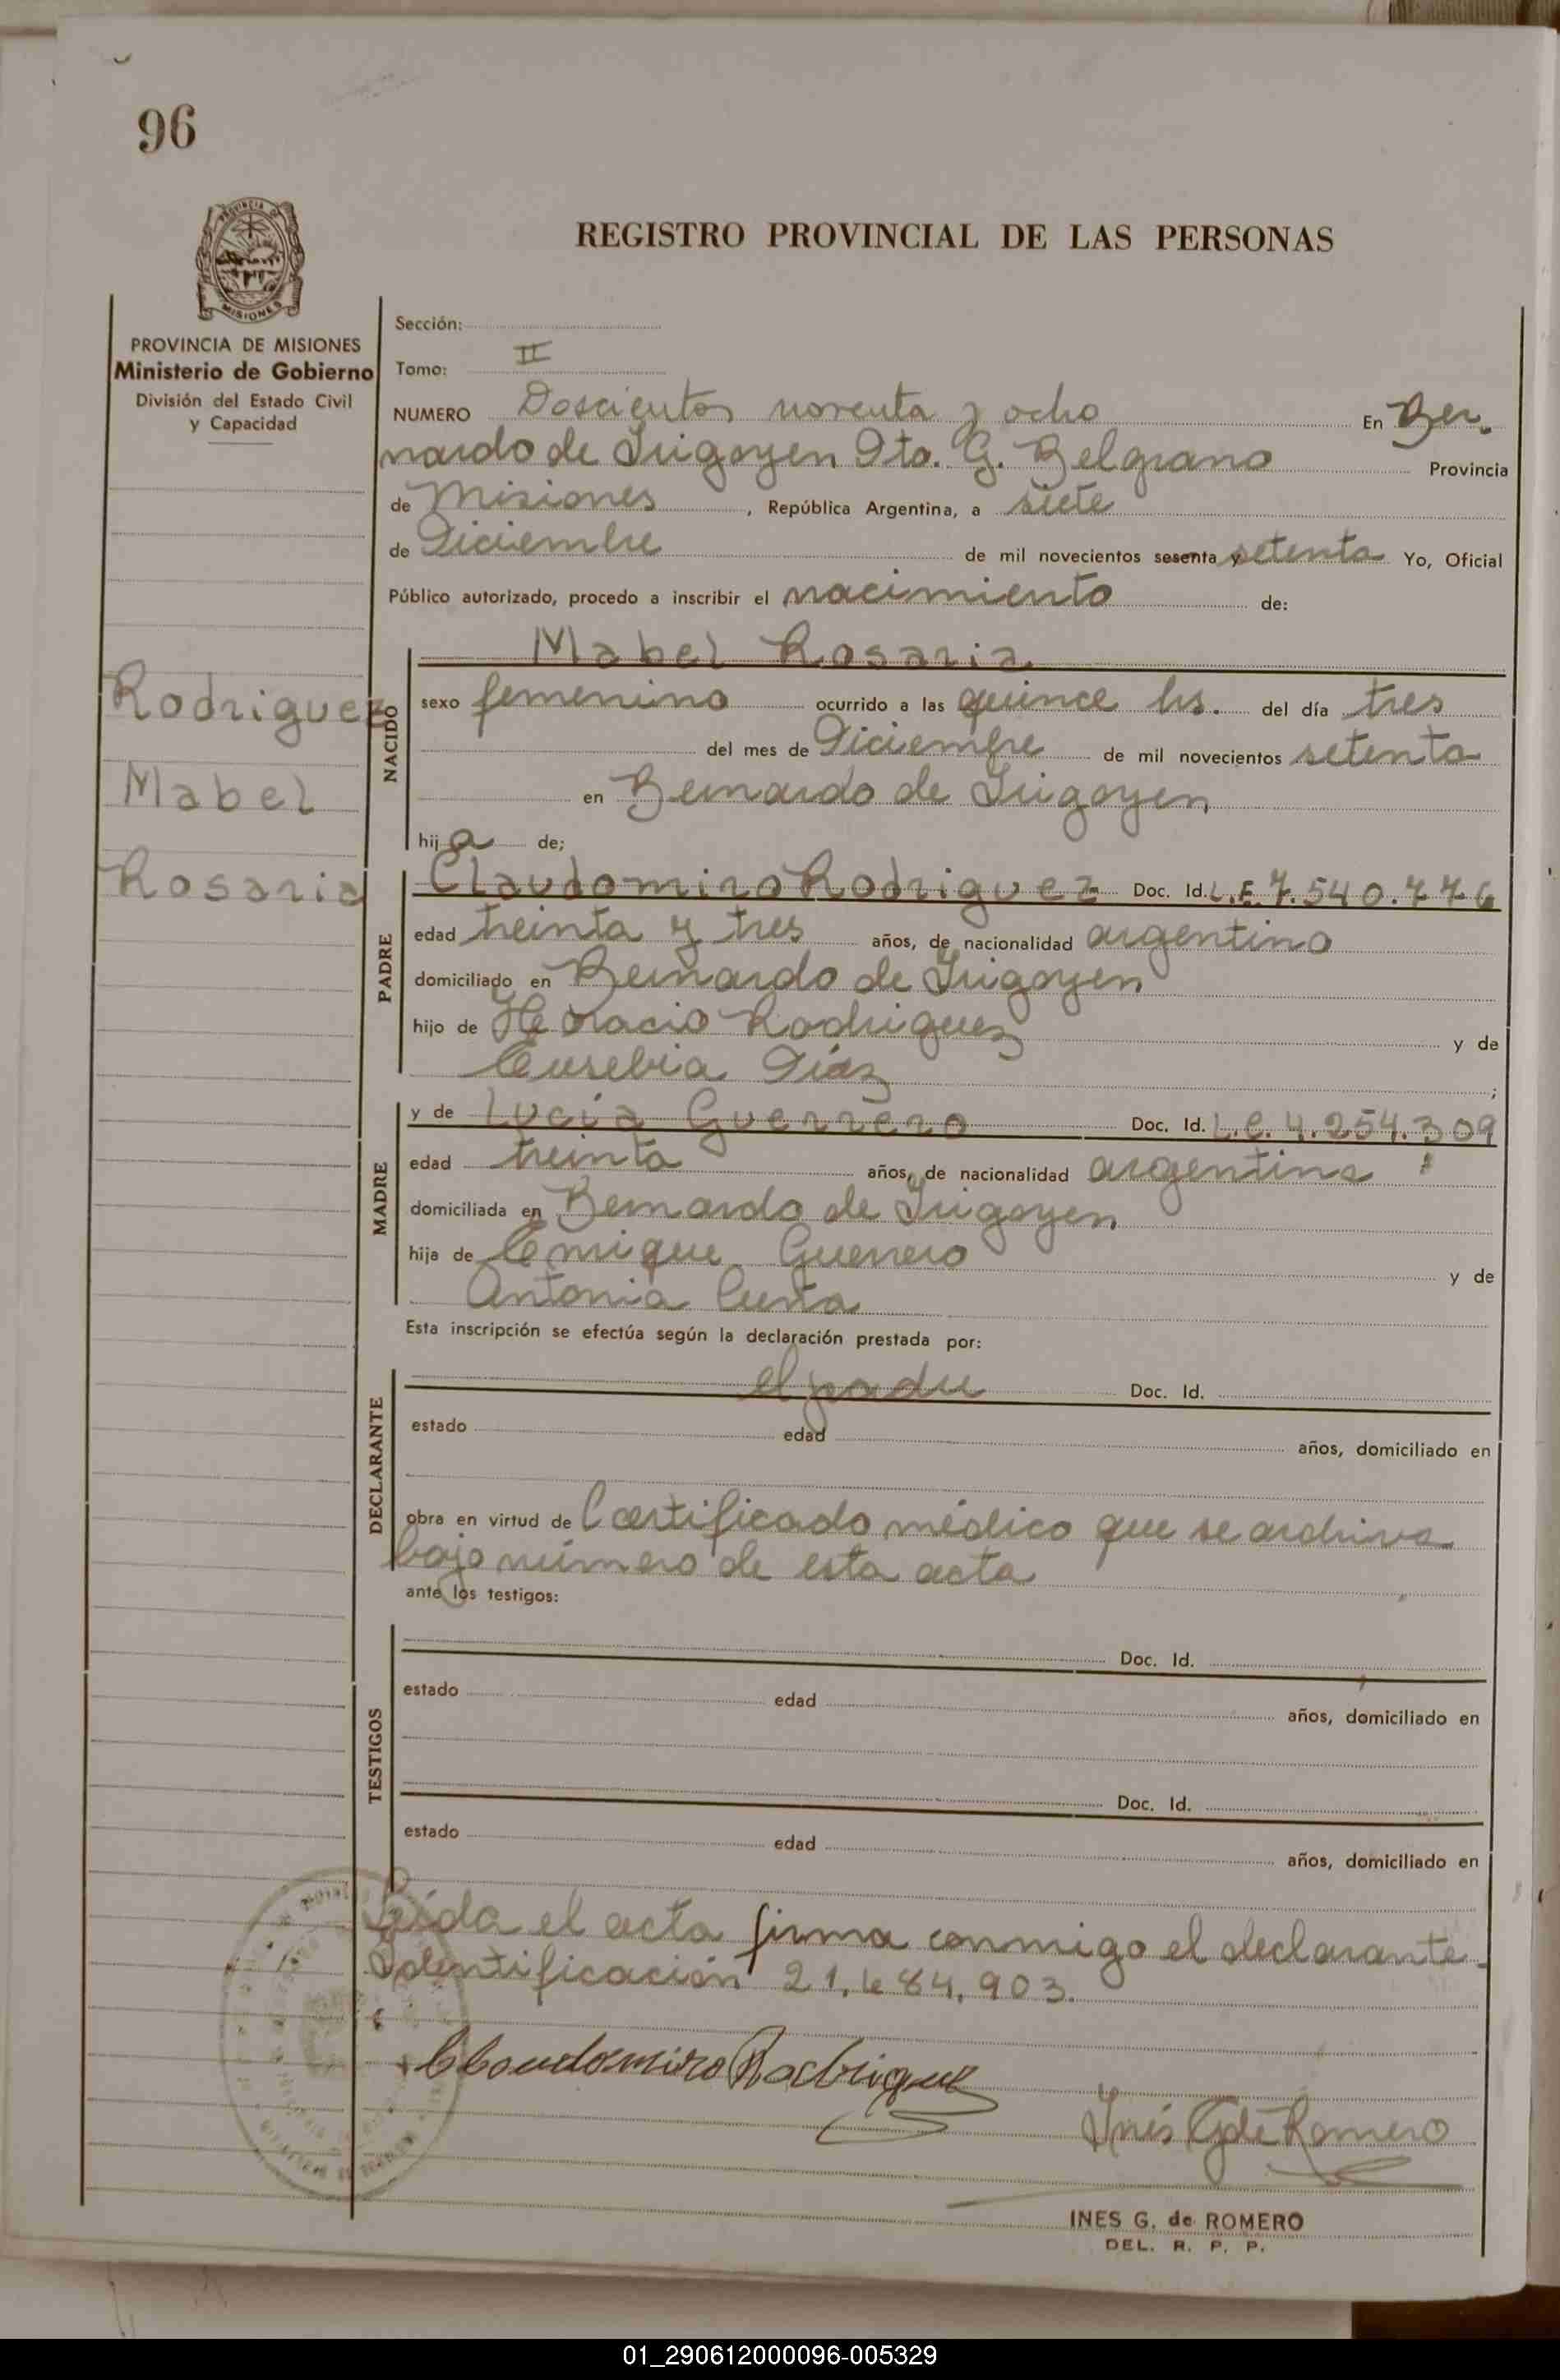 96
PROVINCIA DE MISIONES
MISIONES
PROVINCIA DE MISIONES
Ministerio de Gobierno
División del Estado Civil
y Capacidad
Rodriguez
Mabel
Rosaria
REGISTRO PROVINCIAL DE LAS PERSONAS
Sección:
Tomo: II
NUMERO Doscientos noventa y ocho En Ber.
nardo de Irigoyen Dto. G. Belgrano Provincia
de Misiones, República Argentina, a siete
de Diciembre de mil novecientos sesenta y setenta Yo, Oficial
Público autorizado, procedo a inscribir el nacimiento de:
Mabel Rosaria
NACIDO
sexo femenino ocurrido a las quince hs. del día tres
del mes de Diciembre de mil novecientos setenta
en Bernardo de Irigoyen
hija de;
PADRE
Claudomiro Rodriguez Doc. Id. L.E. 7.540.776
edad treinta y tres años, de nacionalidad argentino
domiciliado en Bernardo de Irigoyen
hijo de Horacio Rodriguez y de
Eusebia Díaz ;
MADRE
y de Lucía Guerrero Doc. Id. L.C. 4.254.309
edad treinta años, de nacionalidad argentina
domiciliada en Bernardo de Irigoyen
hija de Enrique Guerrero y de
Antonia
Esta inscripción se efectúa según la declaración prestada por:
DECLARANTE
el padre Doc. Id.
estado edad años, domiciliado en
obra en virtud de Certificado médico que se archiva
bajo número de esta acta
ante los testigos:
TESTIGOS
Doc. Id.
estado edad años, domiciliado en
Doc. Id.
estado edad años, domiciliado en
Leída el acta firma conmigo el declarante.
Identificación 21.484.903.
Claudomiro Rodriguez
Inés G de Romero
INES G. de ROMERO
DEL. R. P. P.
01_290612000096-005329